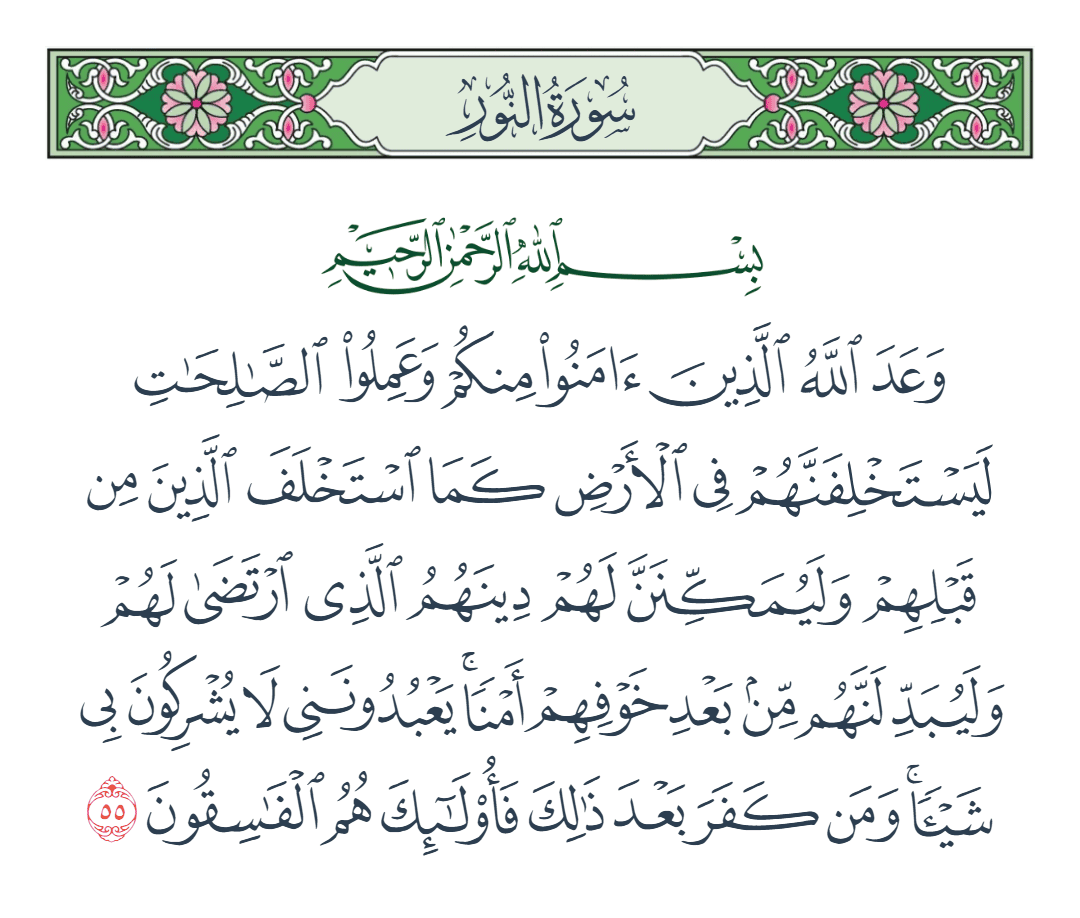 سُورَةُ النُّورِ
بِسْمِ ٱللَّهِ ٱلرَّحْمَٰنِ ٱلرَّحِيمِ
وَعَدَ ٱللَّهُ ٱلَّذِينَ ءَامَنُوا۟ مِنكُمْ وَعَمِلُوا۟ ٱلصَّـٰلِحَـٰتِ
لَيَسْتَخْلِفَنَّهُمْ فِى ٱلْأَرْضِ كَمَا ٱسْتَخْلَفَ ٱلَّذِينَ مِن
قَبْلِهِمْ وَلَيُمَكِّنَنَّ لَهُمْ دِينَهُمُ ٱلَّذِى ٱرْتَضَىٰ لَهُمْ
وَلَيُبَدِّلَنَّهُم مِّنۢ بَعْدِ خَوْفِهِمْ أَمْنًۭا ۚ يَعْبُدُونَنِى لَا يُشْرِكُونَ بِى
شَيْـًۭٔا ۚ وَمَن كَفَرَ بَعْدَ ذَٰلِكَ فَأُو۟لَـٰٓئِكَ هُمُ ٱلْفَـٰسِقُونَ ٥٥